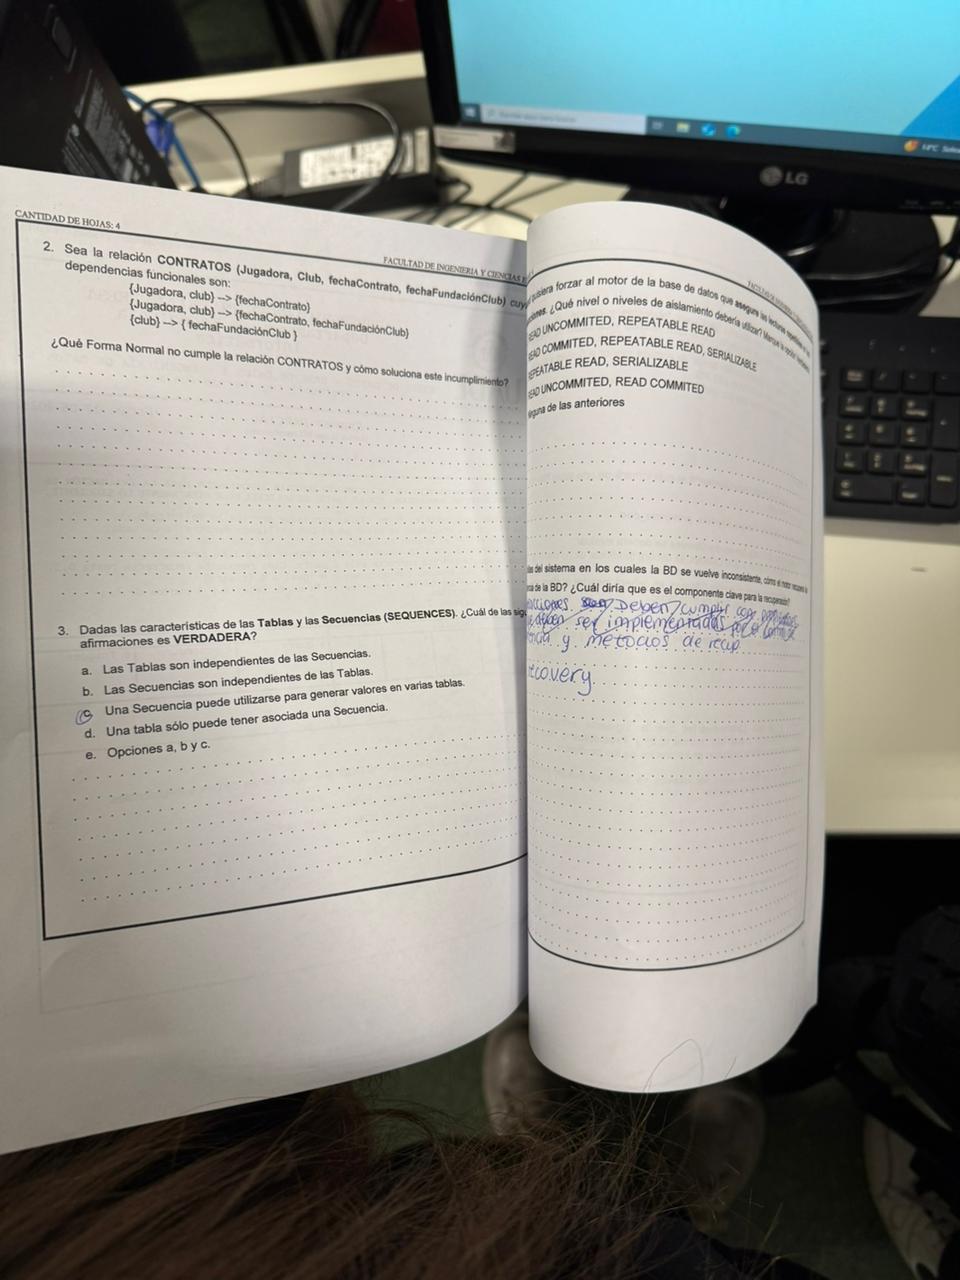 CANTIDAD DE HOJAS: 4
FACULTAD DE INGENIERIA Y CIENCIAS
2. Sea la relación CONTRATOS (Jugadora, Club, fechaContrato, fechaFundaciónClub) cuy
dependencias funcionales son:
{Jugadora, club} --> {fechaContrato}
{Jugadora, club} --> {fechaContrato, fechaFundaciónClub}
{club} --> { fechaFundaciónClub }
¿Qué Forma Normal no cumple la relación CONTRATOS y cómo soluciona este incumplimiento?
3. Dadas las características de las Tablas y las Secuencias (SEQUENCES). ¿Cuál de las sig
afirmaciones es VERDADERA?
a. Las Tablas son independientes de las Secuencias.
b. Las Secuencias son independientes de las Tablas.
c. Una Secuencia puede utilizarse para generar valores en varias tablas.
d. Una tabla sólo puede tener asociada una Secuencia.
e. Opciones a, b y c.
quisiera forzar al motor de la base de datos que asegure las lecturas
ones. ¿Qué nivel o niveles de aislamiento debería utilizar? Marque la opción
EAD UNCOMMITED, REPEATABLE READ
EAD COMMITED, REPEATABLE READ, SERIALIZABLE
EPEATABLE READ, SERIALIZABLE
EAD UNCOMMITED, READ COMMITED
nguna de las anteriores
del sistema en los cuales la BD se vuelve inconsistente, cómo el motor
de la BD? ¿Cuál diría que es el componente clave para la recuperación?
cciones Deben cumplir con
deben ser implementadas por el
y métodos de recup.
ecovery
LG